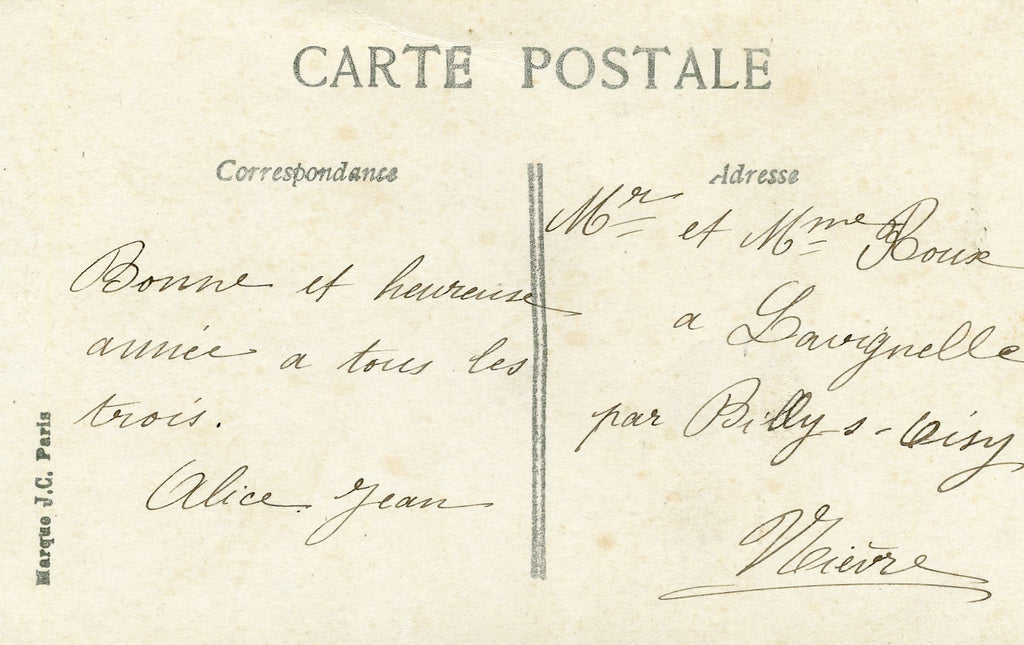 CARTE POSTALE
Correspondance
Bonne et heureuse
année a tous les
trois.
Alice Jean
Marque J.C. Paris
Adresse
Mr et Mme Roux
a Lavignelle
par Billy s-Oisy
Nièvre